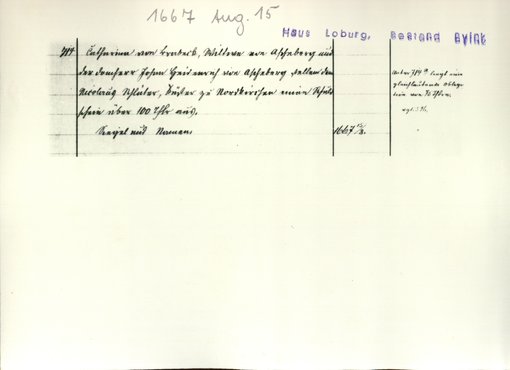 1667 Aug. 15
Haus Loburg, Bestand Byink
Catharina von Brabeck, Wittwe von Ascheberg und
der Domherr Johan Heidenreich von Ascheberg stellen dem
Nicolaus Schlüter, Küster zu Nordkirchen einen Schuld
schein über 100 Thlr aus.
Siegel und Namen.
1667 15/8.
Unter 784a liegt eine
gleichlautende Obliga
tion von Thlrn.